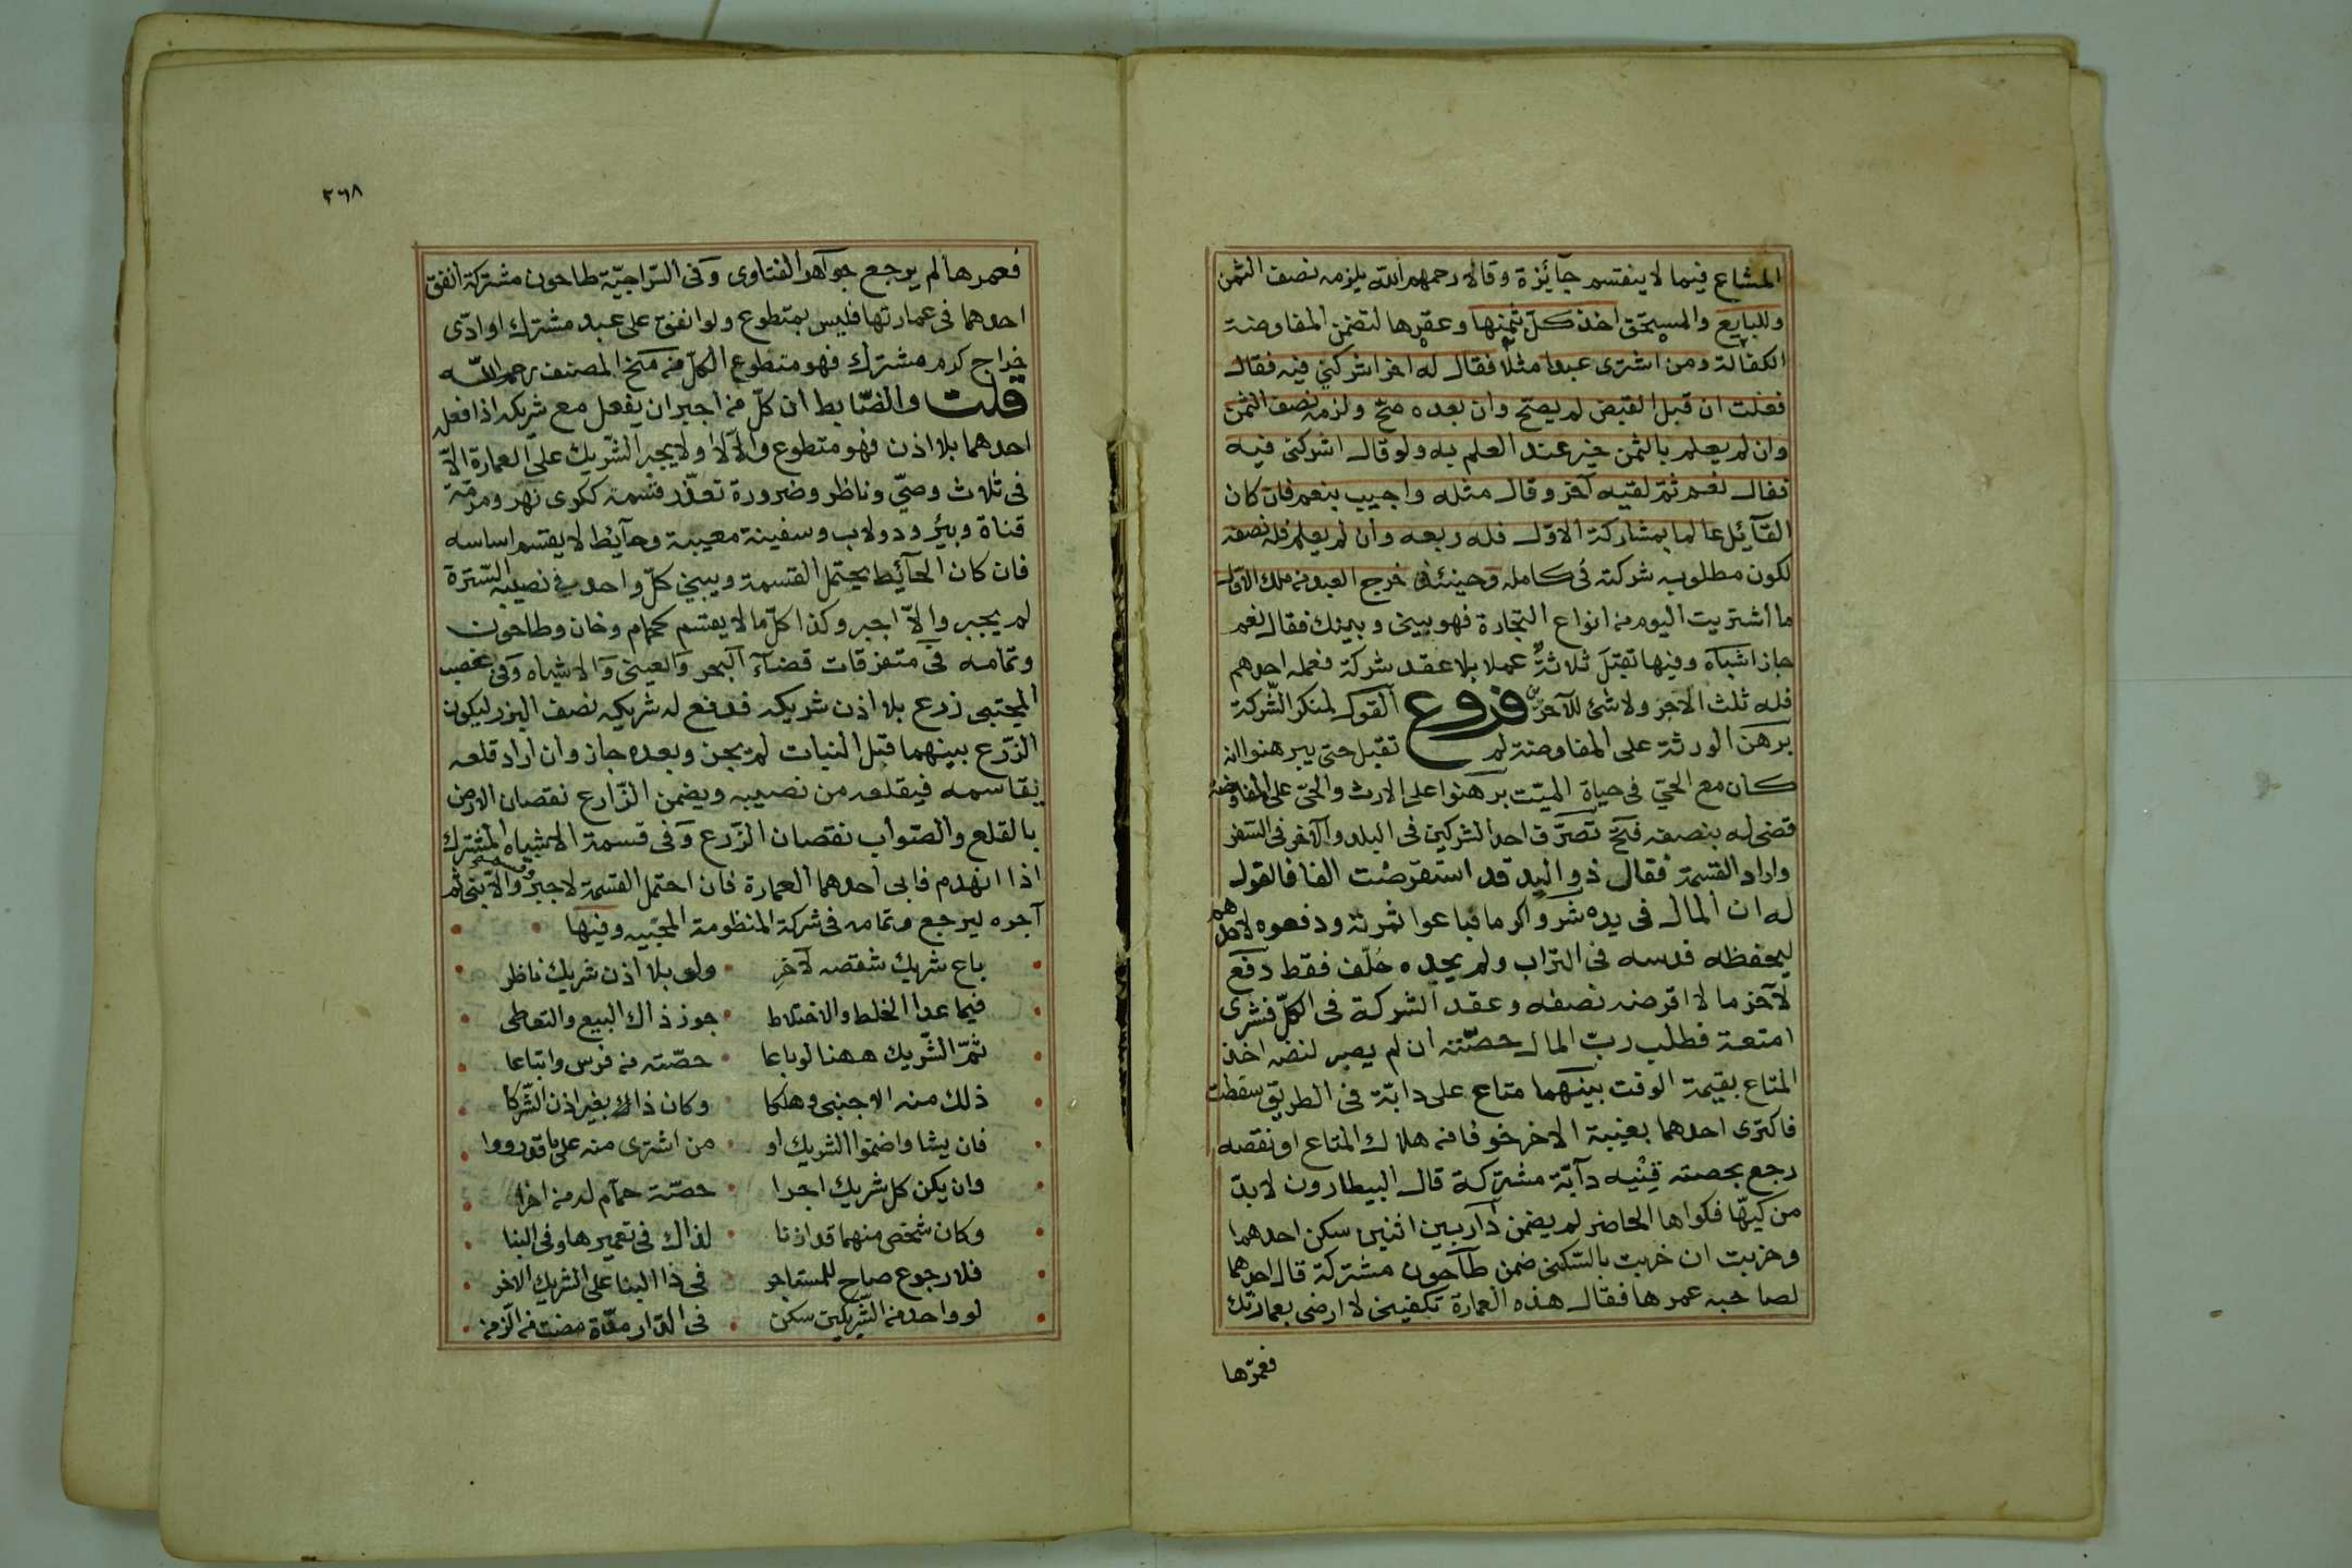 المشاع فيما لا ينقسم جائزة وقالا رحمهم الله يلزمه نصف الثمن
وللبايع والمستحق اخذ كل بثمنها وعقرها لتضمن المفاوضة
الكفالة ومن اشترى عبدا مثلا فقال له اخر اشركني فيه فقال
فعلت ان قبل القبض لم يصح وان بعده صح ولزمه نصف الثمن
وان لم يعلم بالثمن خير عند العلم به ولو قال اشركني فيه
فقال نعم ثم لقيه آخر وقال مثله واجيب بنعم فان كان
القآئل عالما بمشاركة الاول فله ربعه وان لم يعلم فله نصفه
لكون مطلوبه شركته في كامله وحينئذ خرج العبد من ملك الاول
ما اشتريت اليوم من انواع التجارة فهو بيني وبينك فقال نعم
جاز اشباه وفيها تقبل ثلاثة عملا بلا عقد شركة فعمله احدهم
فله ثلث الاجر ولا شئ للآخرين فروع القول لمنكر الشركة
برهن الورثة على المفاوضة لم تقبل حتى يبرهنوا انه
كان مع الحي في حياة الميت برهنوا على الارث والحي على المفاوضة
قضى له بنصفه فتح تصرف احد الشركين في البلد والآخر في السفر
واراد القسمة فقال ذو اليد قد استقرضت الفا فالقول
له ان المال في يده شروا كرما فباعوا ثمرته ودفعوه لاحدهم
ليحفظه فدسه في التراب ولم يجده حلف فقط دفع
لآخر مالا اقرضه نصفه وعقد الشركة في الكل فشرى
امتعة فطلب رب المال حصته ان لم يصبر لنضه اخذ
المتاع بقيمة الوقت بينهما متاع على دابة في الطريق سقطت
فاكترى احدهما بغيبة الاخر خوفا من هلاك المتاع او نقصه
رجع بحصته قنيه دآبة مشتركة قال البيطارون لا بد
من كيها فكواها الحاضر لم يضمن دار بين اثنين سكن احدهما
وخربت ان خربت بالسكنى ضمن طاحون مشتركة قال احدهما
لصاحبه عمرها فقال هذه العمارة تكفيني لا ارضى بعمارتك
فعمرها
٢٦٨
فعمرها لم يرجع جواهر الفتاوى وفي السراجية طاحون مشتركة انفق
احدهما في عمارتها فليس بمتطوع ولو انفق على عبد مشترك او ادى
خراج كرم مشترك فهو متطوع الكل من منح المصنف رحمه الله
قلت والضابط ان كل من اجبر ان يفعل مع شريكه اذا فعله
احدهما بلا اذن فهو متطوع والا لا ولا يجبر الشريك على العمارة الا
في ثلاث وصي وناظر وضرورة تعذر قسمة ككرى نهر ومرمة
قناة وبئر ودولاب وسفينة معيبة وحآيط لا يقسم اساسه
فان كان الحآئط يحتمل القسمة ويبني كل واحد في نصيبه السترة
لم يجبر والا اجبر وكذا كل ما لا يقسم كحمام وخان وطاحون
وتمامه في متفرقات قضآء البحر والعيني والاشباه وفي غصب
المجتبى زرع بلا اذن شريكه فدفع له شريكه نصف البزر ليكون
الزرع بينهما قبل النبات لم يجز وبعده جاز وان اراد قلعه
يقاسمه فيقلعه من نصيبه ويضمن الزارع نقصان الارض
بالقلع والصواب نقصان الزرع وفي قسمة الاشباه المشترك
اذا انهدم فابى احدهما العمارة فان احتمل القسمة لا جبر وقسم والا بنى ثم
آجره ليرجع وتمامه في شركة المنظومة المحبيه وفيها
باع شريك شقصه لآخر ولو بلا اذن شريك ناظر
فيما عدا الخلط والاختلاط جوز ذاك البيع والتعاطي
ثم الشريك ههنا لو باعا حصته من فرس وابتاعا
ذلك منه الاجنبي وهلكا وكان ذاك بغير اذن الشركا
فان يشا واضمنوا الشريك او من اشترى منه على ما قد رووا
وان يكن كل شريك اجرا حصته حمام له من اخرا
وكان شخص منهما قد اذنا لذاك في تعميرها وفي البنا
فلا رجوع صاح للمستاجر في ذا البنا على الشريك الاخر
لو واحد من الشريكين سكن في الدار مدة مضت من الزمن